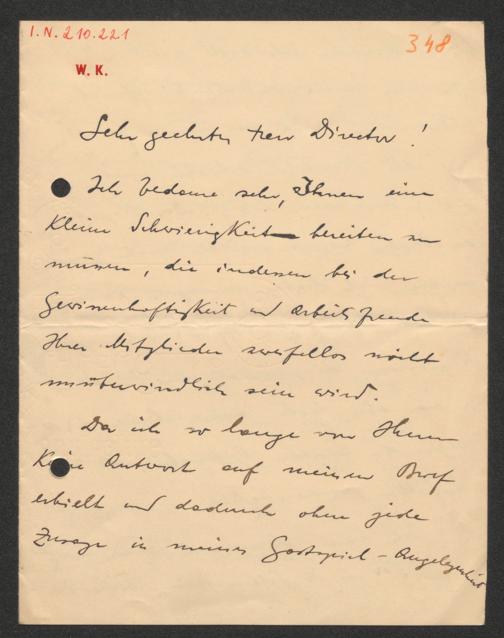 I.N. 210.221
348
W. K.
Sehr geehrter Herr Director!
Ich bedaure sehr, Ihnen eine
kleine Schwierigkeit bereiten zu
müssen, die indessen bei der
Gewissenhaftigkeit und Arbeitsfreude
Ihrer Mitglieder zweifellos nicht
unüberwindlich sein wird.
Da ich so lange von Ihnen
keine Antwort auf meinen Brief
erhielt und dadurch ohne jede
Zusage in meiner Gastspiel-Angelegenheit